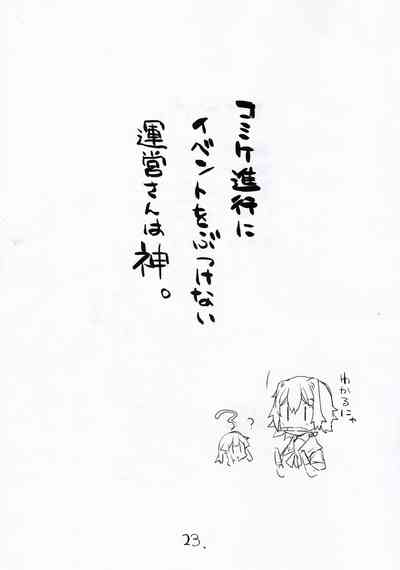 コミケ進行に
イベントをぶつけない
運営さんは神。
わかるにゃ
??
23.